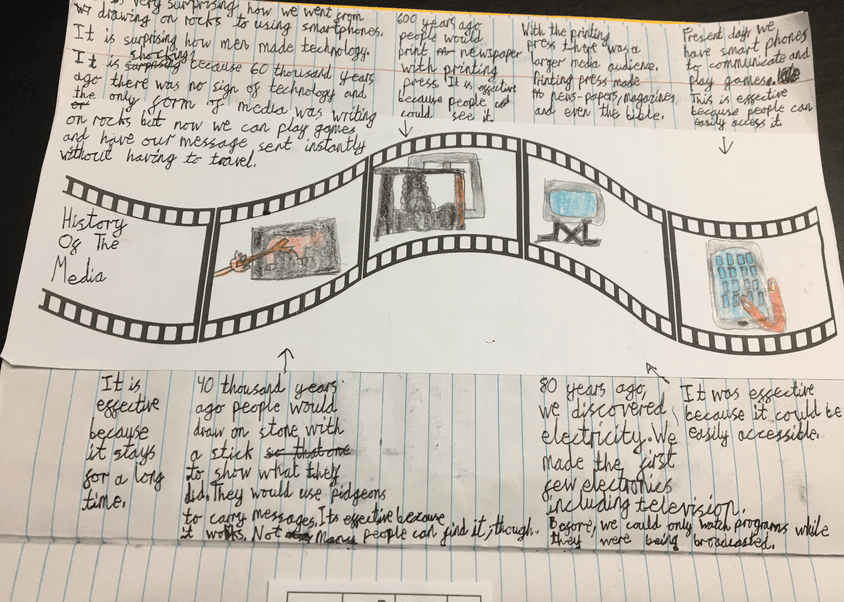 is very surprising how we went from
drawing on rocks to using smartphones.
It is surprising how men made technology.
It is shocking because 60 thousand years
ago there was no sign of technology and
the only form of media was writing
on rocks but now we can play games
and have our message sent instantly
without having to travel.
600 years ago
people would
print newspaper
with printing
press. It is effective
because people
could see it.
With the printing
press there was a
larger media audience.
Printing press made
news-papers, magazines
and even the bible.
Present days we
have smart phones
to communicate and
play games.
This is effective
because people can
easily access it.
History
Of The
Media
It is
effective
because
it stays
for a long
time.
40 thousand years
ago people would
draw on stone with
a stick so that one
to show what they
did. They would use pidgeons
to carry messages. Its effective because
it works. Not many people can find it, though.
80 years ago,
we discovered
electricity. We
made the first
few electronics
including television.
Before, we could only watch programs while
they were being broadcasted.
It was effective
because it could be
easily accessible.